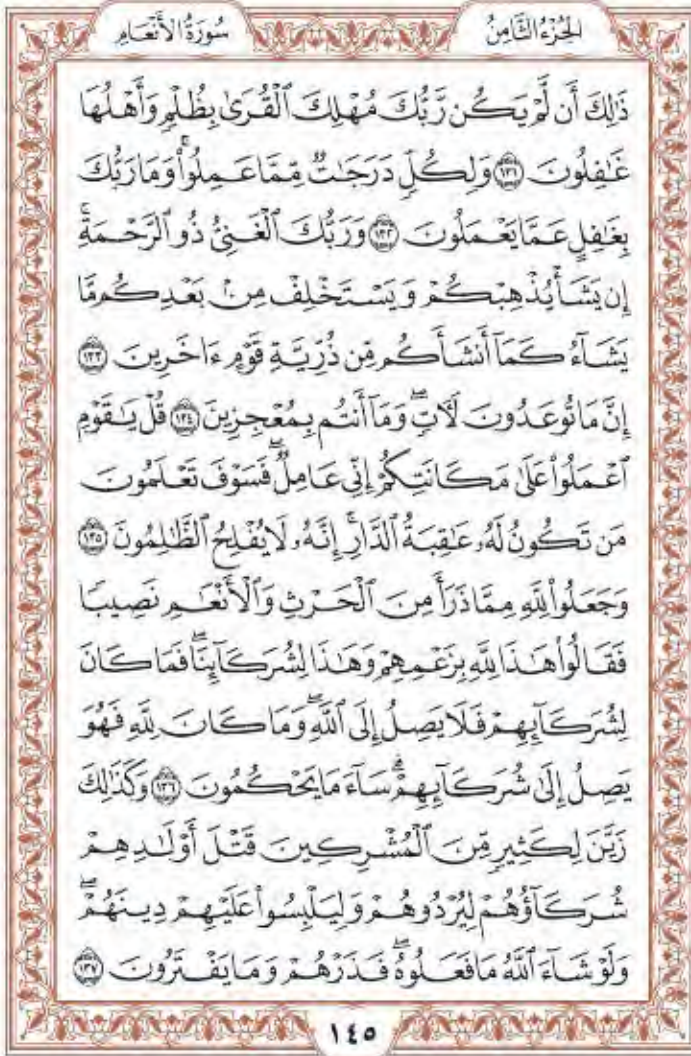 الجُزْءُ الثَّامِنُ
سُورَةُ الأَنْعَامِ
ذَٰلِكَ أَن لَّمْ يَكُن رَّبُّكَ مُهْلِكَ ٱلْقُرَىٰ بِظُلْمٍ وَأَهْلُهَا
غَٰفِلُونَ ١٣١ وَلِكُلٍّ دَرَجَٰتٌ مِّمَّا عَمِلُوا۟ ۚ وَمَا رَبُّكَ
بِغَٰفِلٍ عَمَّا يَعْمَلُونَ ١٣٢ وَرَبُّكَ ٱلْغَنِىُّ ذُو ٱلرَّحْمَةِ ۚ
إِن يَشَأْ يُذْهِبْكُمْ وَيَسْتَخْلِفْ مِنۢ بَعْدِكُم مَّا
يَشَآءُ كَمَآ أَنشَأَكُم مِّن ذُرِّيَّةِ قَوْمٍ ءَاخَرِينَ ١٣٣
إِنَّ مَا تُوعَدُونَ لَءَاتٍ ۖ وَمَآ أَنتُم بِمُعْجِزِينَ ١٣٤ قُلْ يَٰقَوْمِ
ٱعْمَلُوا۟ عَلَىٰ مَكَانَتِكُمْ إِنِّى عَامِلٌ ۖ فَسَوْفَ تَعْلَمُونَ
مَن تَكُونُ لَهُۥ عَٰقِبَةُ ٱلدَّارِ ۗ إِنَّهُۥ لَا يُفْلِحُ ٱلظَّٰلِمُونَ ١٣٥
وَجَعَلُوا۟ لِلَّهِ مِمَّا ذَرَأَ مِنَ ٱلْحَرْثِ وَٱلْأَنْعَٰمِ نَصِيبًا
فَقَالُوا۟ هَٰذَا لِلَّهِ بِزَعْمِهِمْ وَهَٰذَا لِشُرَكَآئِنَا ۖ فَمَا كَانَ
لِشُرَكَآئِهِمْ فَلَا يَصِلُ إِلَى ٱللَّهِ ۖ وَمَا كَانَ لِلَّهِ فَهُوَ
يَصِلُ إِلَىٰ شُرَكَآئِهِمْ ۗ سَآءَ مَا يَحْكُمُونَ ١٣٦ وَكَذَٰلِكَ
زَيَّنَ لِكَثِيرٍ مِّنَ ٱلْمُشْرِكِينَ قَتْلَ أَوْلَٰدِهِمْ
شُرَكَآؤُهُمْ لِيُرْدُوهُمْ وَلِيَلْبِسُوا۟ عَلَيْهِمْ دِينَهُمْ ۖ
وَلَوْ شَآءَ ٱللَّهُ مَا فَعَلُوهُ ۖ فَذَرْهُمْ وَمَا يَفْتَرُونَ ١٣٧
١٤٥